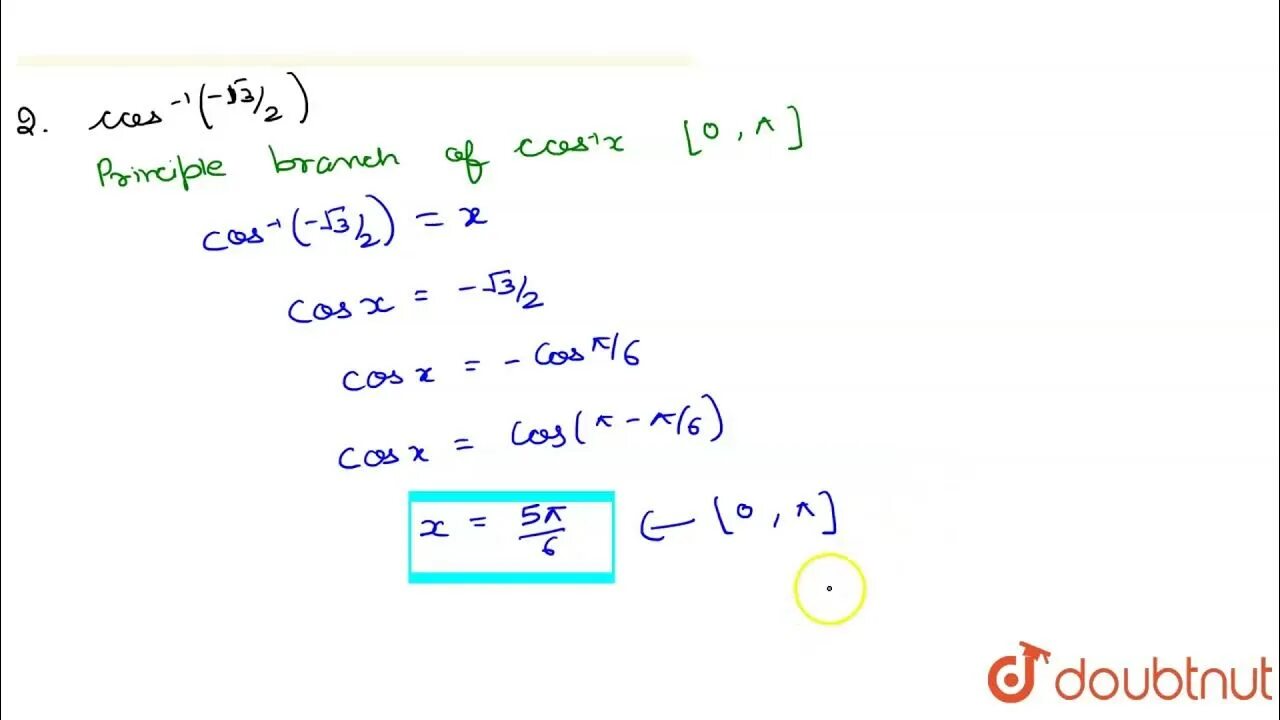 2. cos⁻¹(-√3/2)
Principle branch of cos⁻¹x [0, π]
cos⁻¹(-√3/2) = x
cos x = -√3/2
cos x = - cos π/6
cos x = cos(π - π/6)
x = 5π/6 ∈ [0, π]
doubtnut